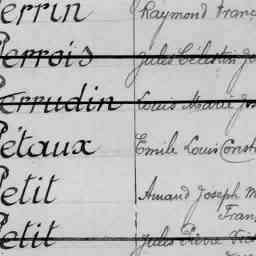 Perrin Raymond Franç
Perrois Jules Célestin Jo
Perrudin Louis Marie Jos
Pétaux Emile Louis (Const
Petit Amand Joseph M
Fran
Petit Jules Pierre Vic